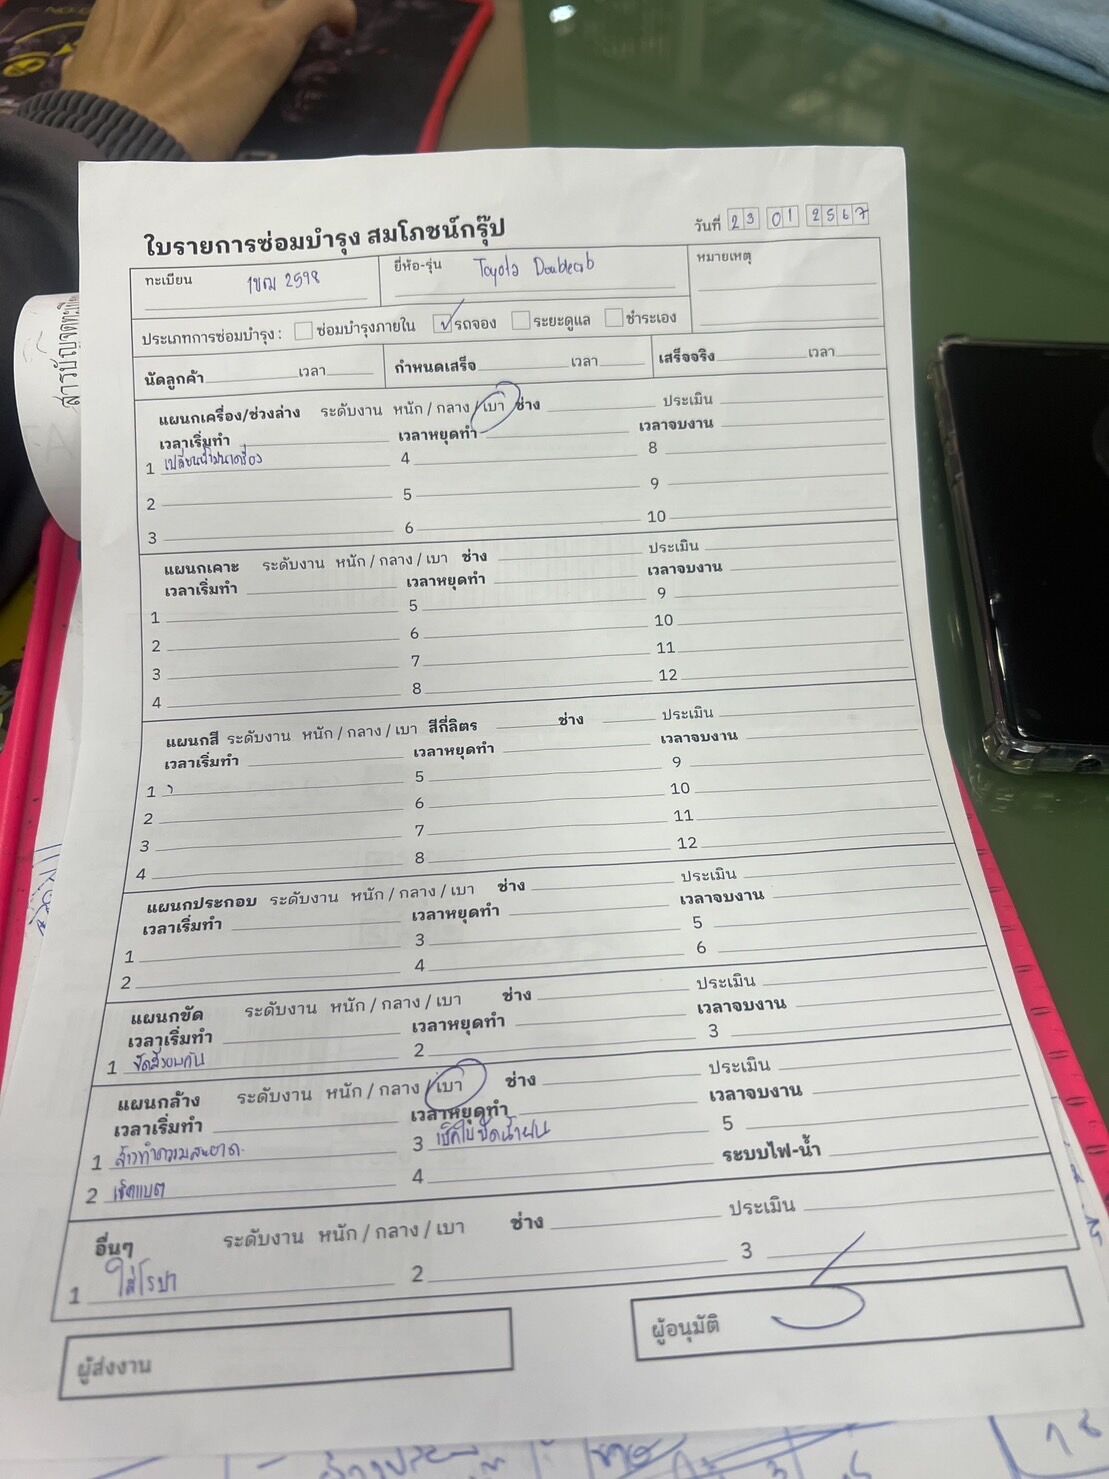 ใบรายการซ่อมบำรุง สมโภชน์กรุ๊ป
วันที่ 23 01 2567
ทะเบียน 1ขฌ 2598 ยี่ห้อ-รุ่น Toyota Doublecab หมายเหตุ
ประเภทการซ่อมบำรุง : ซ่อมบำรุงภายใน รถจอง ระยะดูแล ชำระเอง
นัดลูกค้า เวลา กำหนดเสร็จ เวลา เสร็จจริง เวลา
แผนกเครื่อง/ช่วงล่าง ระดับงาน หนัก / กลาง / เบา ช่าง ประเมิน
เวลาเริ่มทำ เวลาหยุดทำ เวลาจบงาน
1 เปลี่ยนน้ำมันเครื่อง 4 8
2 5 9
3 6 10
แผนกเคาะ ระดับงาน หนัก / กลาง / เบา ช่าง ประเมิน
เวลาเริ่มทำ เวลาหยุดทำ เวลาจบงาน
1 5 9
2 6 10
3 7 11
4 8 12
แผนกสี ระดับงาน หนัก / กลาง / เบา สีกี่ลิตร ช่าง ประเมิน
เวลาเริ่มทำ เวลาหยุดทำ เวลาจบงาน
1 5 9
2 6 10
3 7 11
4 8 12
แผนกประกอบ ระดับงาน หนัก / กลาง / เบา ช่าง ประเมิน
เวลาเริ่มทำ เวลาหยุดทำ เวลาจบงาน
1 3 5
2 4 6
แผนกขัด ระดับงาน หนัก / กลาง / เบา ช่าง ประเมิน
เวลาเริ่มทำ เวลาหยุดทำ เวลาจบงาน
1 ขัดสีรอบคัน 2 3
แผนกล้าง ระดับงาน หนัก / กลาง / เบา ช่าง ประเมิน
เวลาเริ่มทำ เวลาหยุดทำ เวลาจบงาน
1 ล้างทำความสะอาด 3 เช็คใบปัดน้ำฝน 5
2 เช็คแบต 4 ระบบไฟ-น้ำ
อื่นๆ ระดับงาน หนัก / กลาง / เบา ช่าง ประเมิน
1 ใส่โรบา 2 3
ผู้ส่งงาน ผู้อนุมัติ